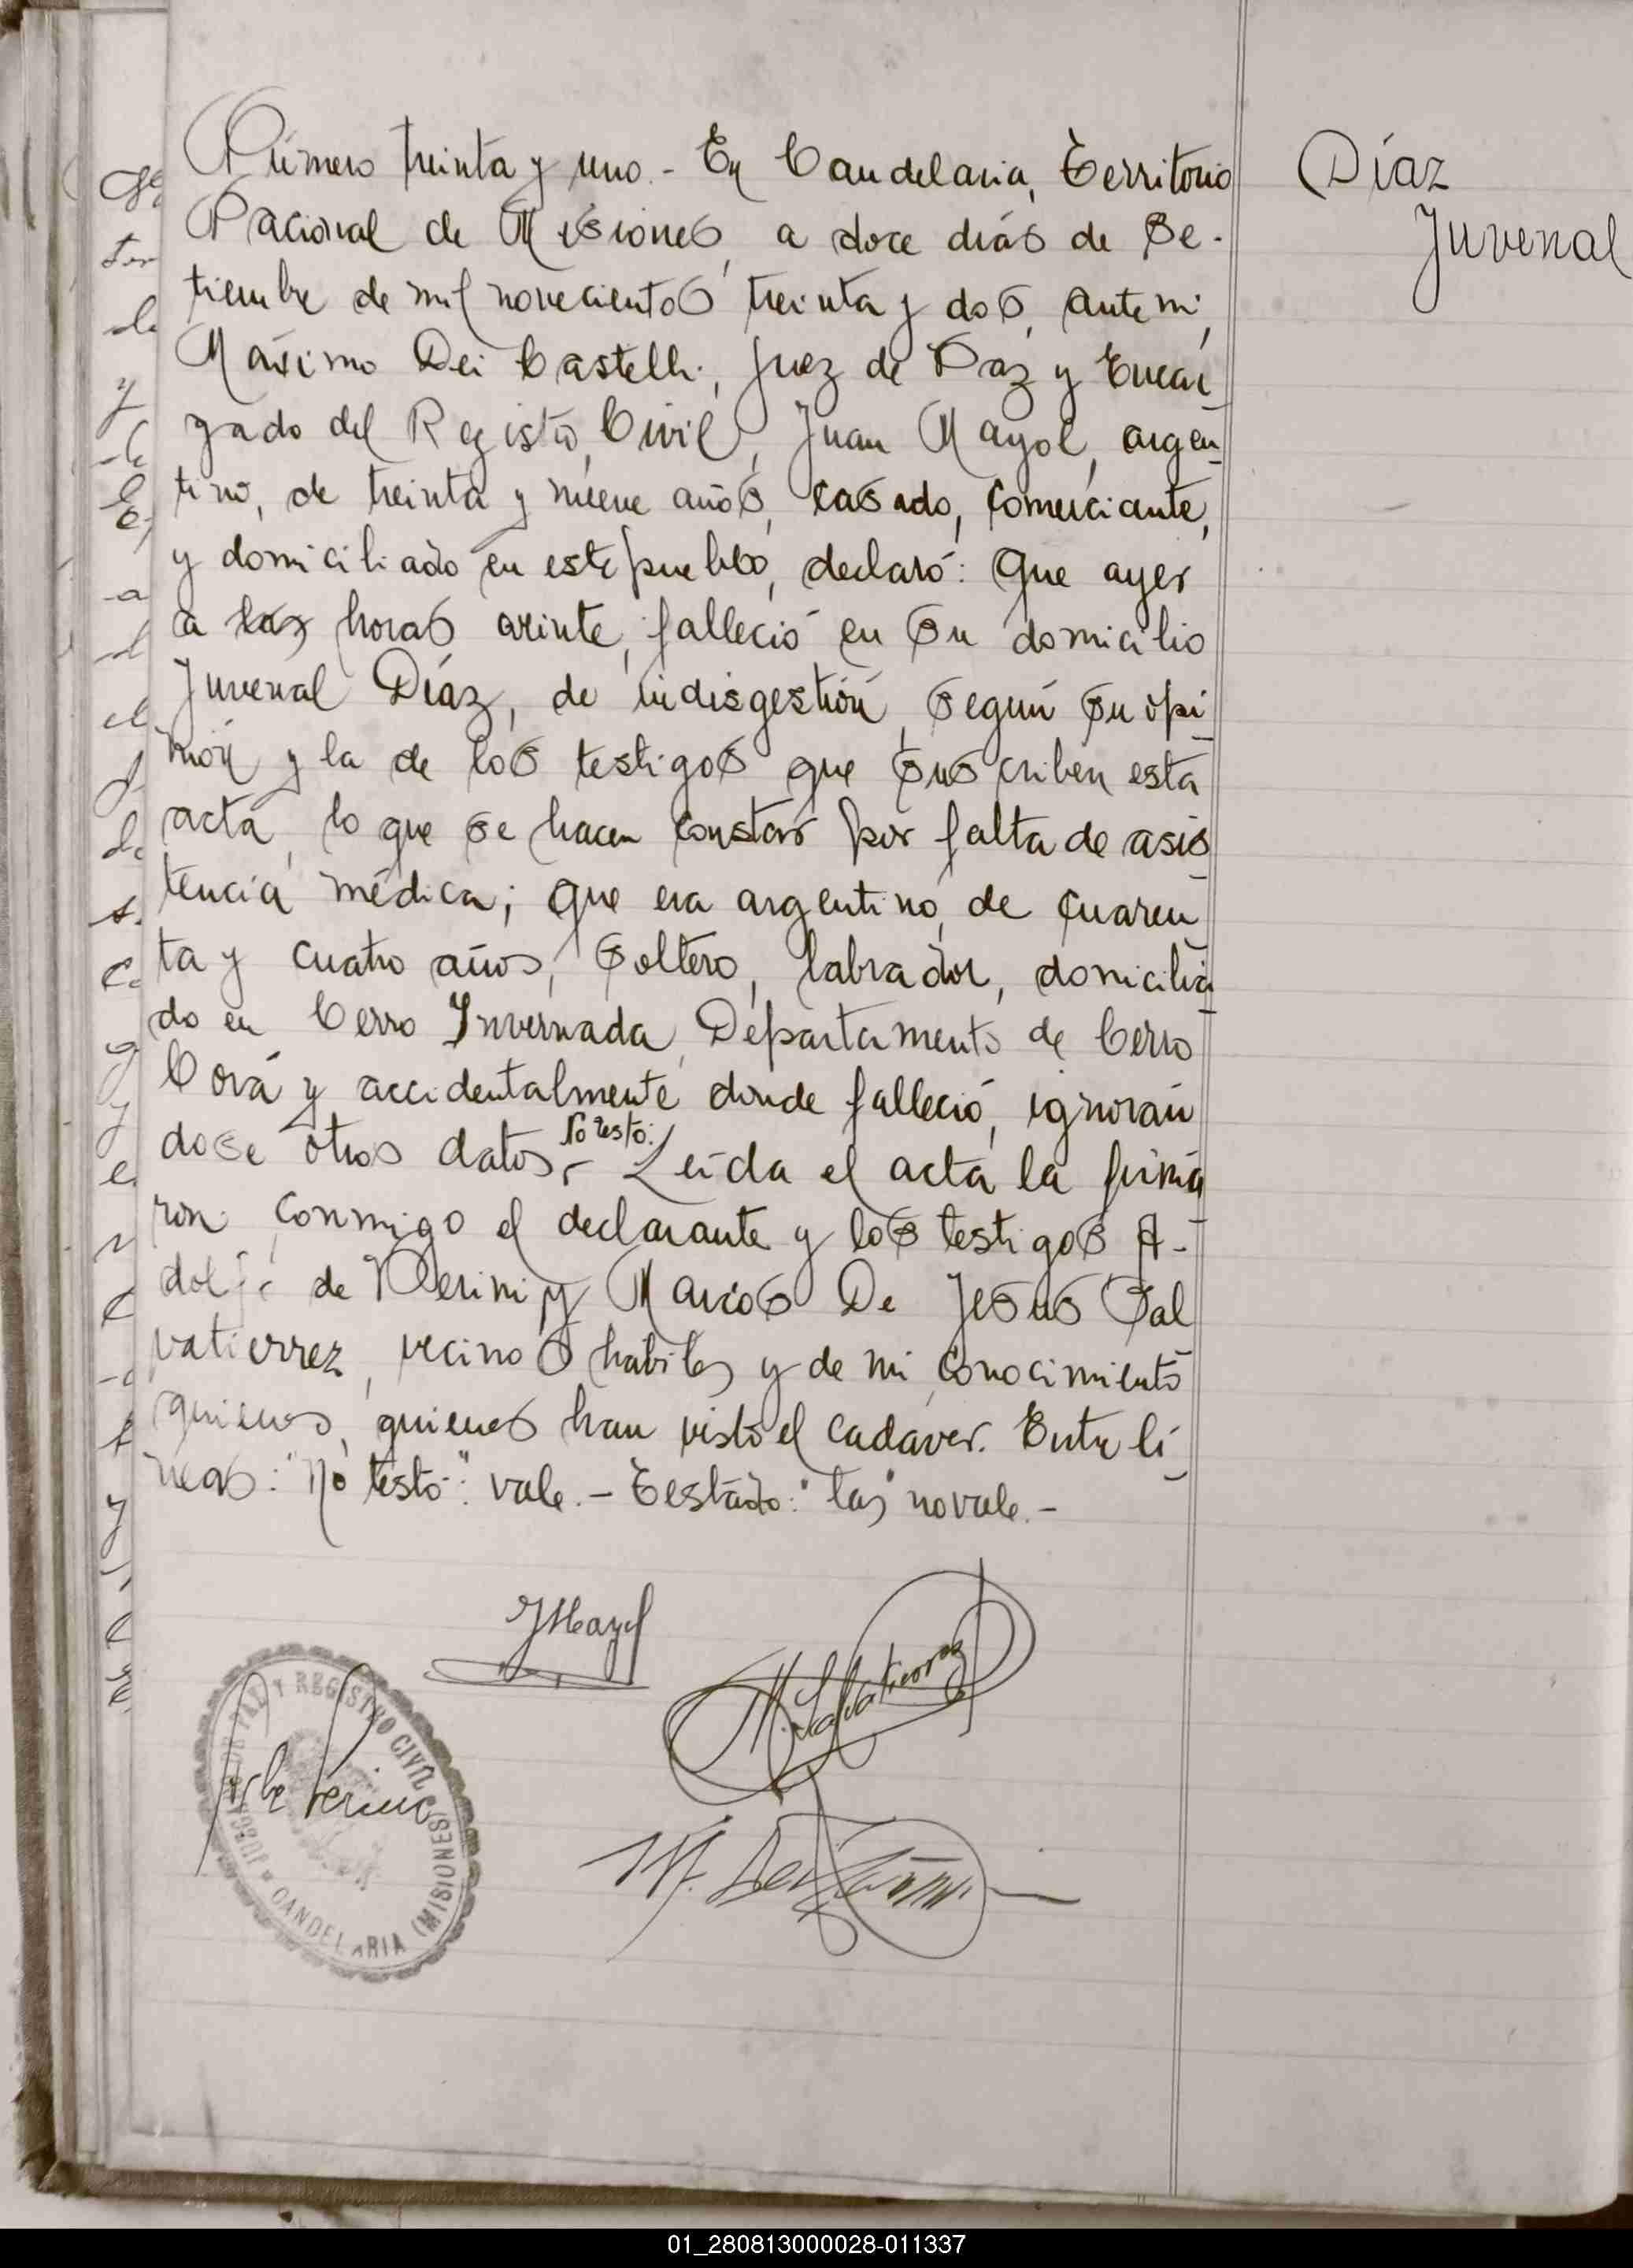 Número treinta y uno.- En Candelaria, Territorio
Nacional de Misiones, a doce días de Se-
tiembre de mil novecientos treinta y dos, ante mi,
Máximo Dei Castelli, Juez de Paz y Encar-
gado del Registro Civil, Juan Mayol, argen-
tino, de treinta y nueve años, casado, comerciante,
y domiciliado en este pueblo, declaró: Que ayer
a las horas veinte, falleció en su domicilio
Juvenal Díaz, de indisgestión, según su opi-
nión y la de los testigos que suscriben esta
acta, lo que se hacen constar por falta de asis-
tencia médica; que era argentino, de cuaren-
ta y cuatro años, soltero, labrador, domicilia-
do en Cerro Invernada, Departamento de Cerro
Corá y accidentalmente donde falleció, ignorán
dose otros datos.- No testó: Leída el acta la firma-
ron conmigo el declarante y los testigos A-
dolfo de Perini y Marcos De Jesús Sal
vatierrez, vecinos hábiles y de mi conocimiento
quienes, quienes han visto el cadáver. Entre lí-
neas: "No testó": vale.- Testado: "las" no vale.-
Díaz
Juvenal
JMayol
M. Salvatierrez
de Perini
M. Dei
JUZGADO DE PAZ Y REGISTRO CIVIL
CANDELARIA (MISIONES)
01_280813000028-011337